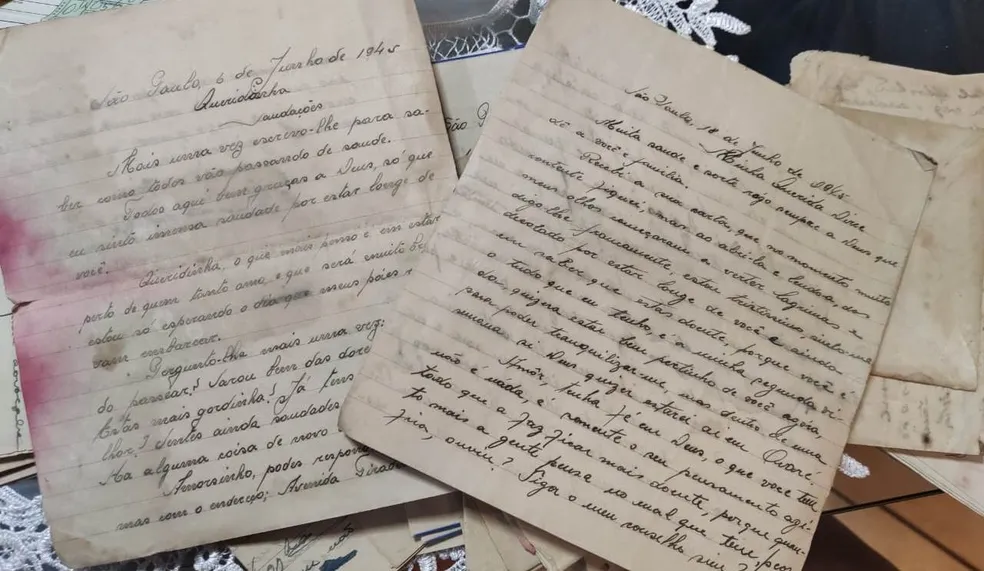 São Paulo, 6 de Junho de 1945
Queridinha
Saudações
Mais uma vez escrevo-lhe para sa-
ber como todos vão passando de saude.
Todos aqui bem graças a Deus, só que
eu sinto imensa saudade por estar longe de
você.
Queridinha, o que mais penso é em estar
perto de quem tanto amo, e que será muito
estou só esperando o dia que meus páes
vam embarcar.
Pergunto-lhe mais uma vez:
do passar? Sarou bem das dores
Estás mais gordinha? Já tens
lhor? Sentes ainda saudades
Ha alguma coisa de novo
Amorsinho, podes respond
mas com o endereço; Avenida
São Paulo, 18 de Junho de 1945
Minha Querida Dine
Muita saude e sorte rôjo sempre a Deus que
dê a você e familia.
Recebi a sua carta, que no momento muito
contente fiquei, mas ao abri-la e lendo-a, os
meus olhos começaram a verter lagrimas e
digo-lhe francamente, estou tristissimo, sinto-me
derrotado por estar longe de você e ainda
em saber que estás doente, porque você é
o tudo que eu tenho, é a minha segunda vi-
da, quizera estar bem pertinho de você agora,
para poder tranquilizar-me, mas dentro de uma
semana si Deus quizer estarei ai em Avaré.
Amôr, tenha fé em Deus, o que você tem
não é nada, é somente o seu pensamento agi-
tado que a faz ficar mais doente, porque quan-
to mais a gente pensa no mal que tem, peor
fica, ouviu? Siga o meu conselho sim?